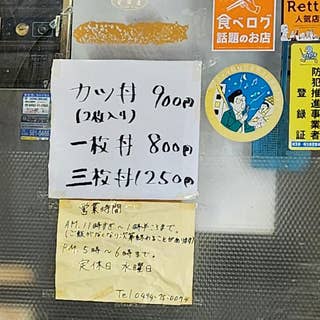 食べログ
話題のお店
Rett
人気店
防犯推進事業者
登録証
カツ丼 900円
(2枚入り)
一枚丼 800円
三枚丼 1250円
営業時間
A.M. 11時すぎ〜1時半ごろまで。
(ご飯がなくなり次第終わることがあります)
P.M. 5時〜6時まで。
定休日 水曜日
Tel 0494-75-0074